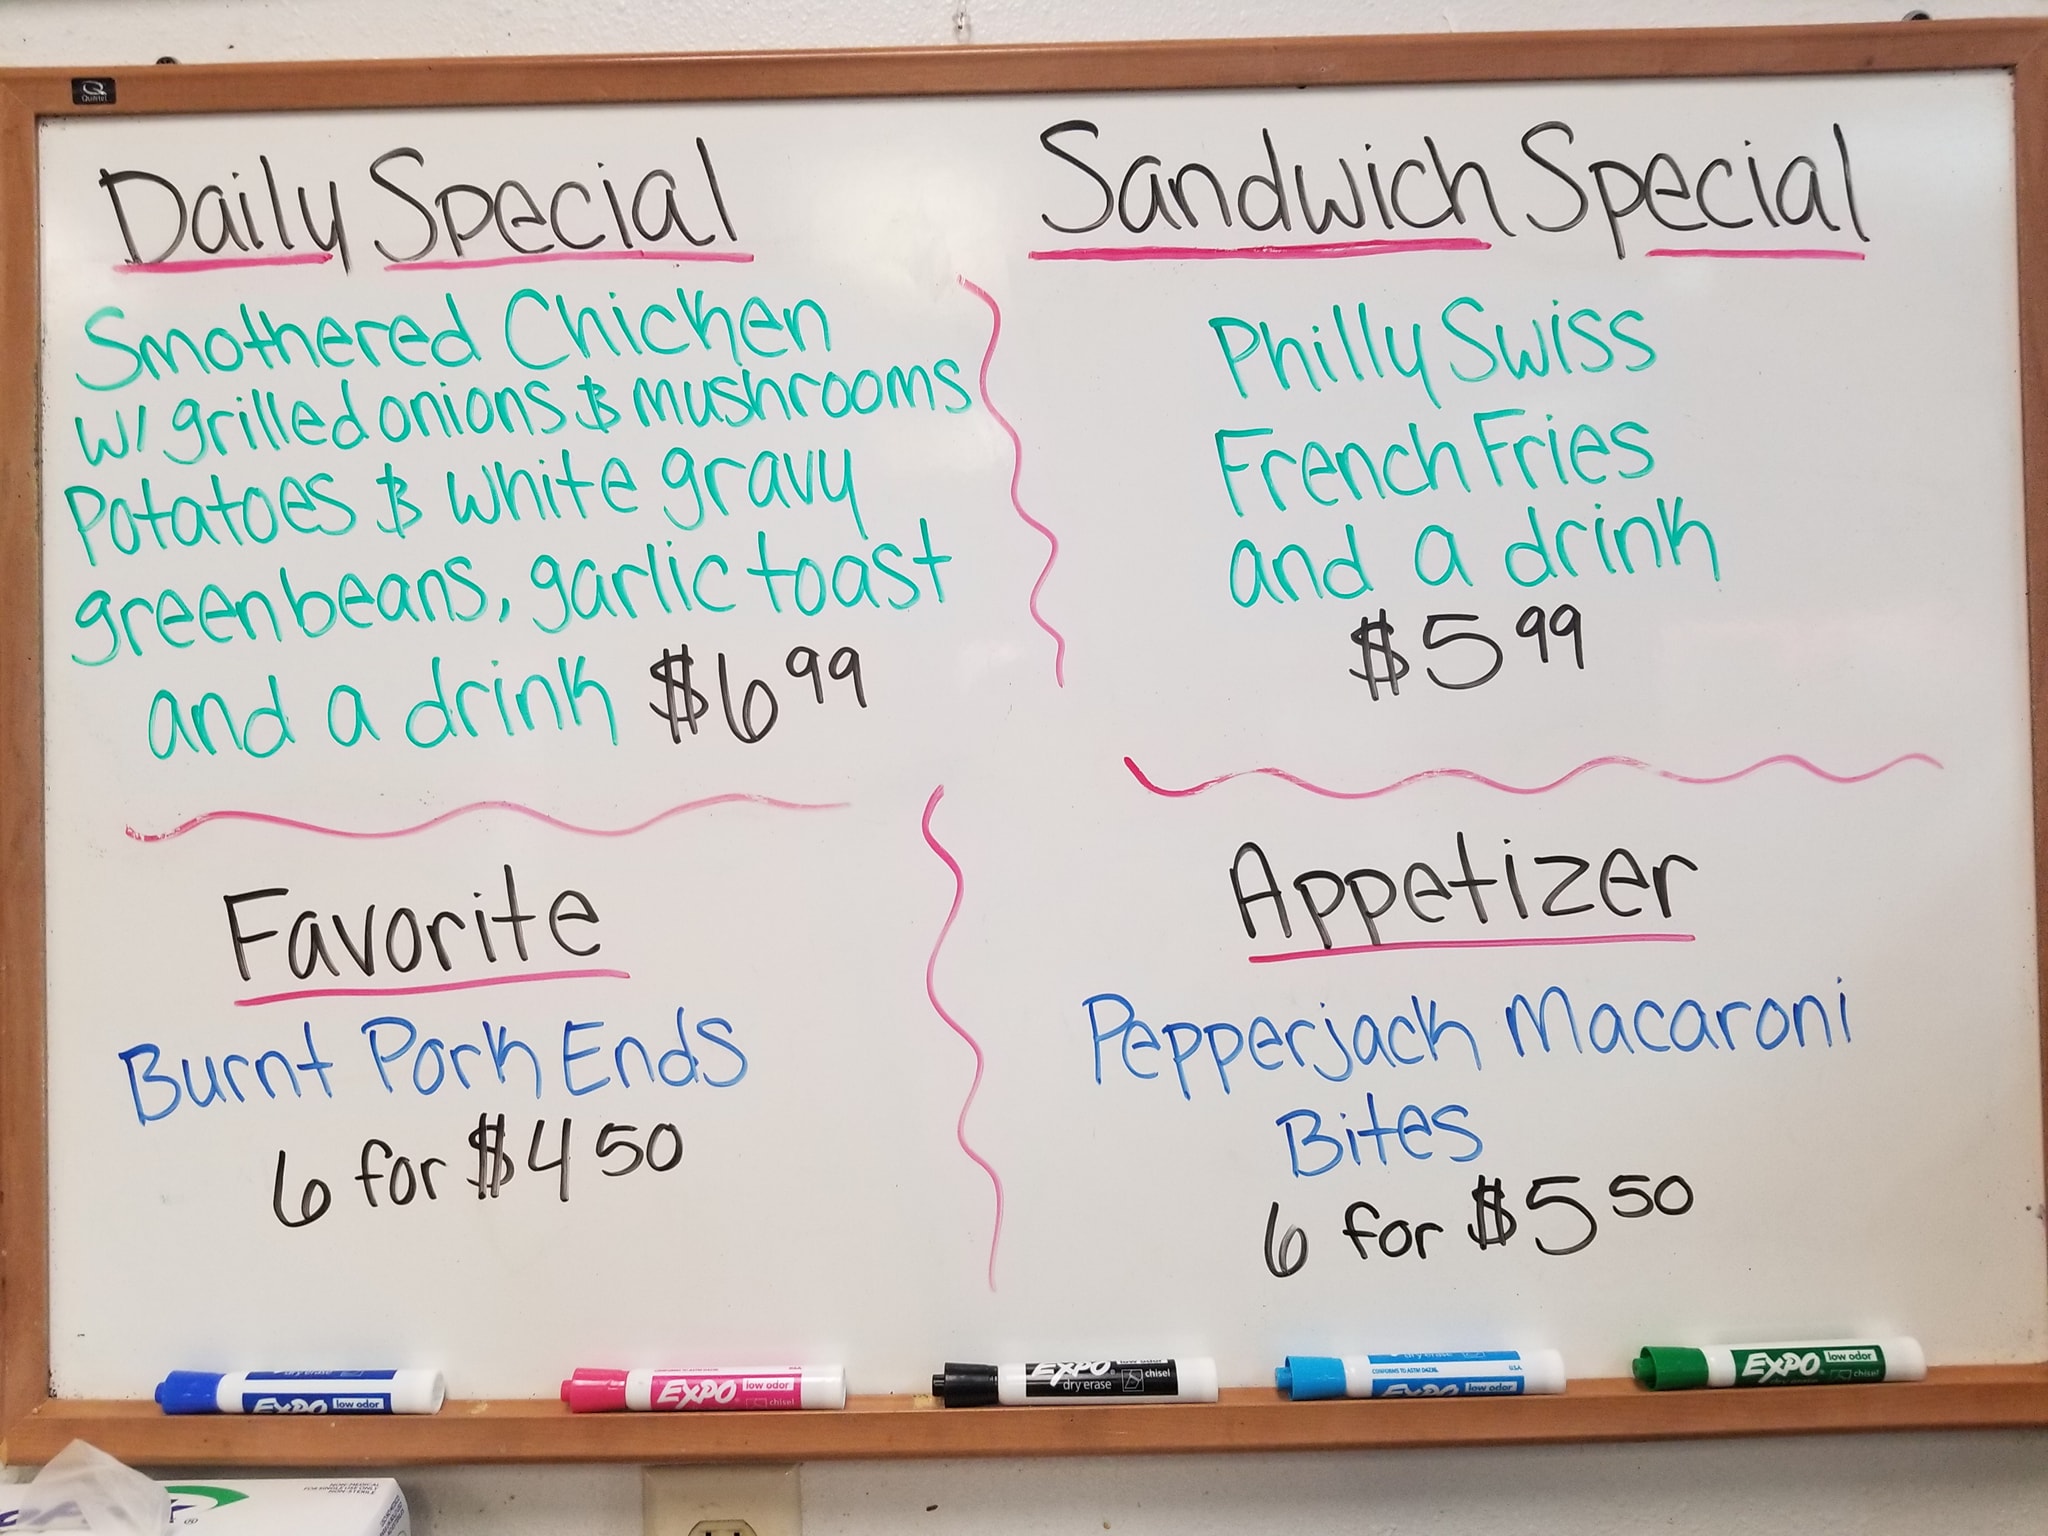 Quartet
Daily Special
Smothered Chicken
w/ grilled onions & mushrooms
Potatoes & white gravy
green beans, garlic toast
and a drink $6 99
Sandwich Special
Philly Swiss
French Fries
and a drink
$5 99
Favorite
Burnt Pork Ends
6 for $4 50
Appetizer
Pepperjack Macaroni
Bites
6 for $5 50
EXPO low odor
EXPO low odor chisel
EXPO low odor dry erase chisel
CONFORMS TO ASTM D4236 USA
EXPO low odor
EXPO low odor chisel